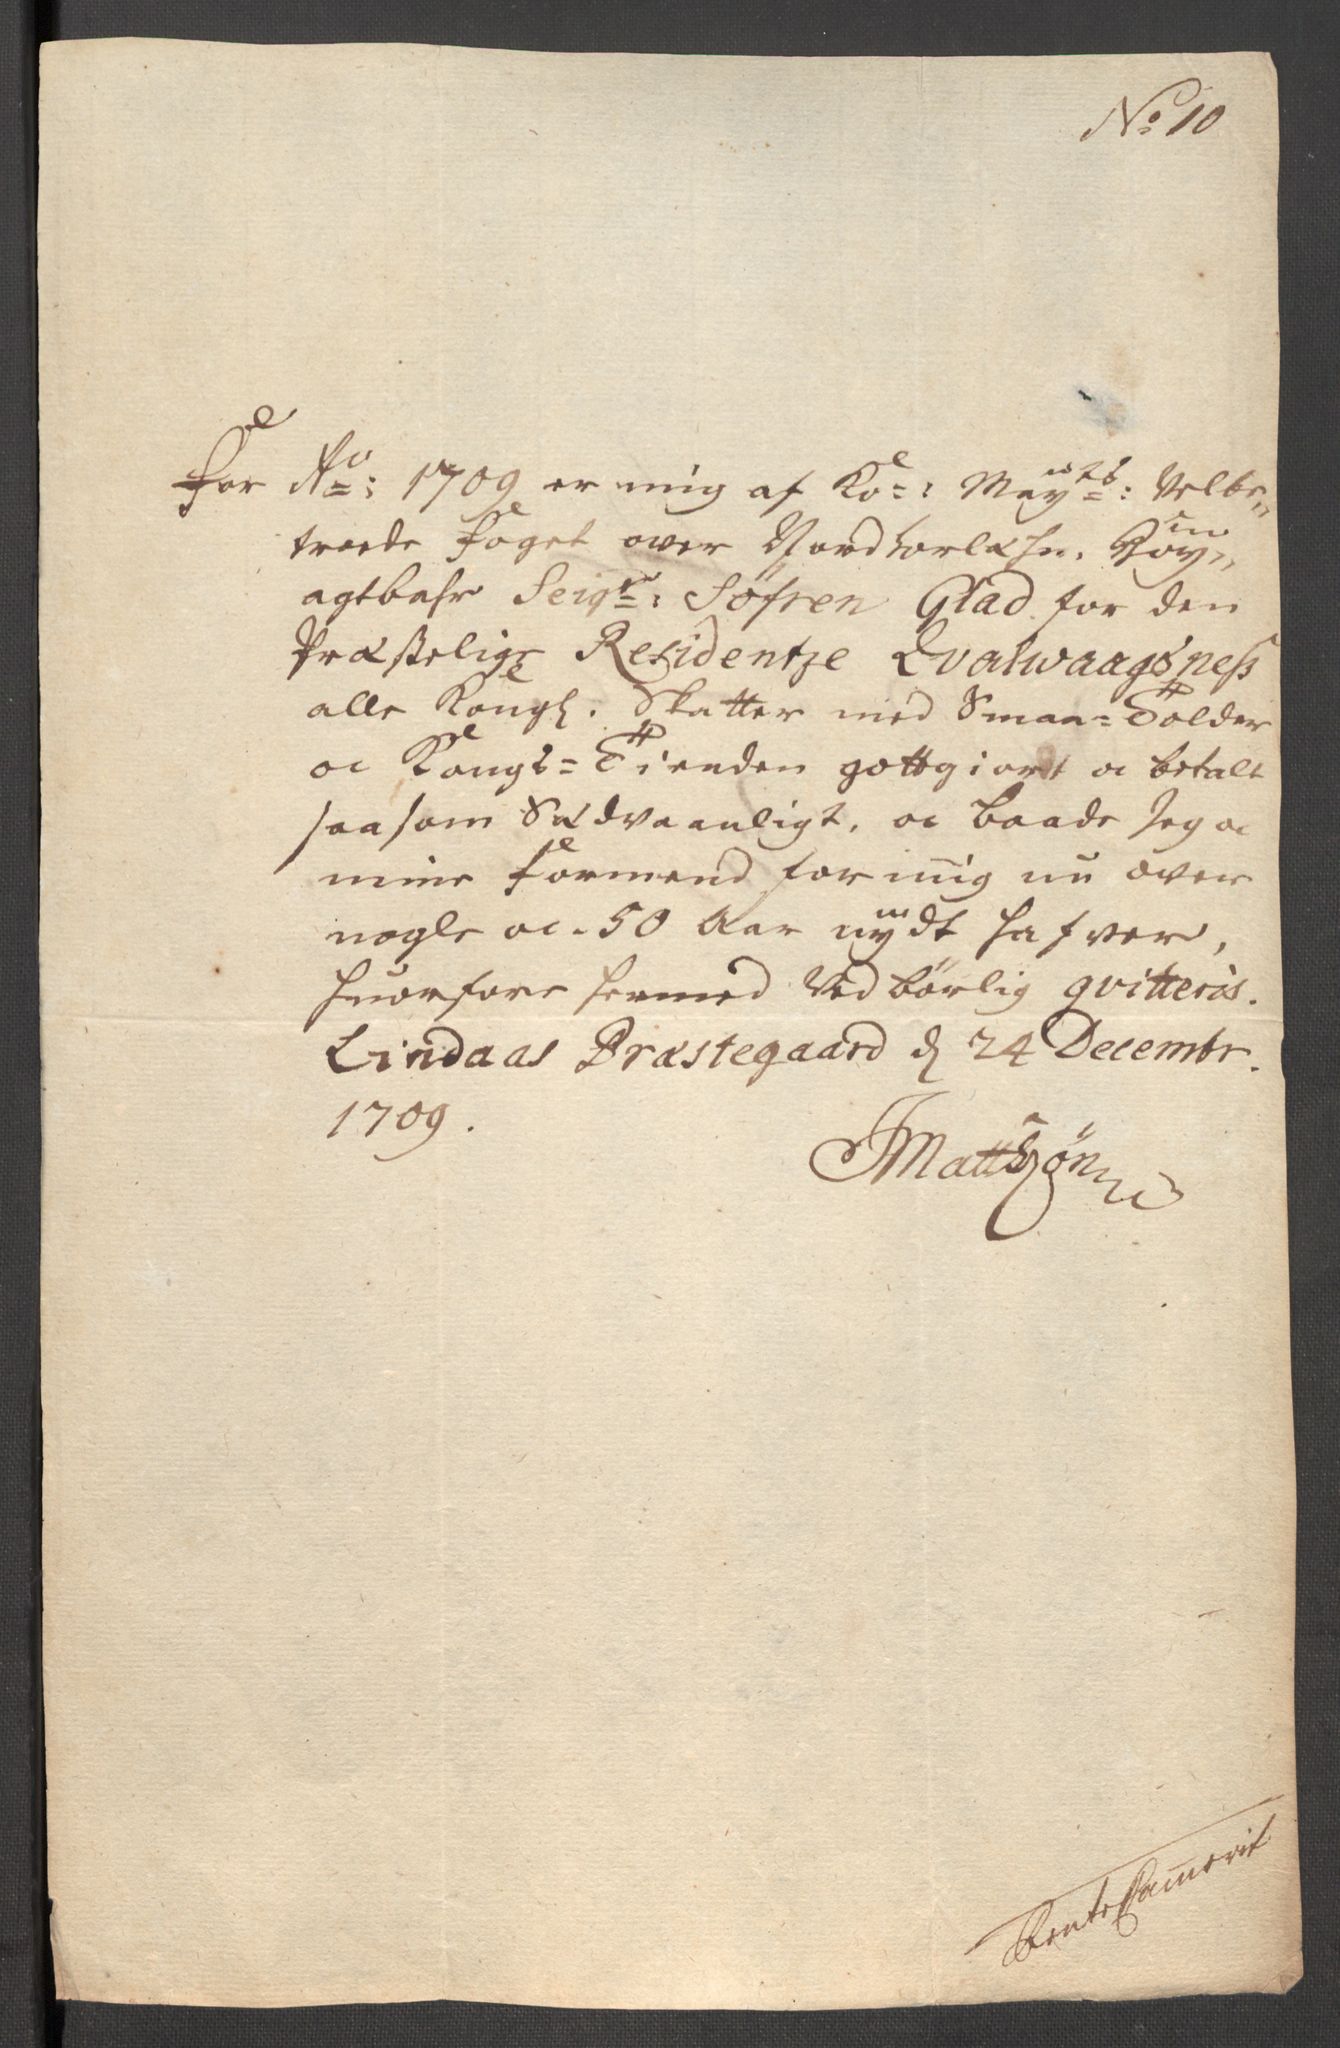 No: 10
For Ao: 1709 er mig af Ko: Mayts: Velbe„
troede Foget over Nordhorlehn, Høy„
agtbahr Seigr: Søfren Glad for den
Præstelige Residentze Qvalwaagsness
alle Kongl. Skatter med Smaa=Tolder
oc Kongs=Tienden gottgiort oc betalt
saasom Sædvaanligt, oc baade Jeg oc
mine Formend for mig nu over
nogle oc 50 Aar nÿdt hafver,
huorfore hermed Vedbørlig qvitteris.
Lindaas Præstegaard d 24 Decembr.
1709.
JMattszøn
RenteCammerit